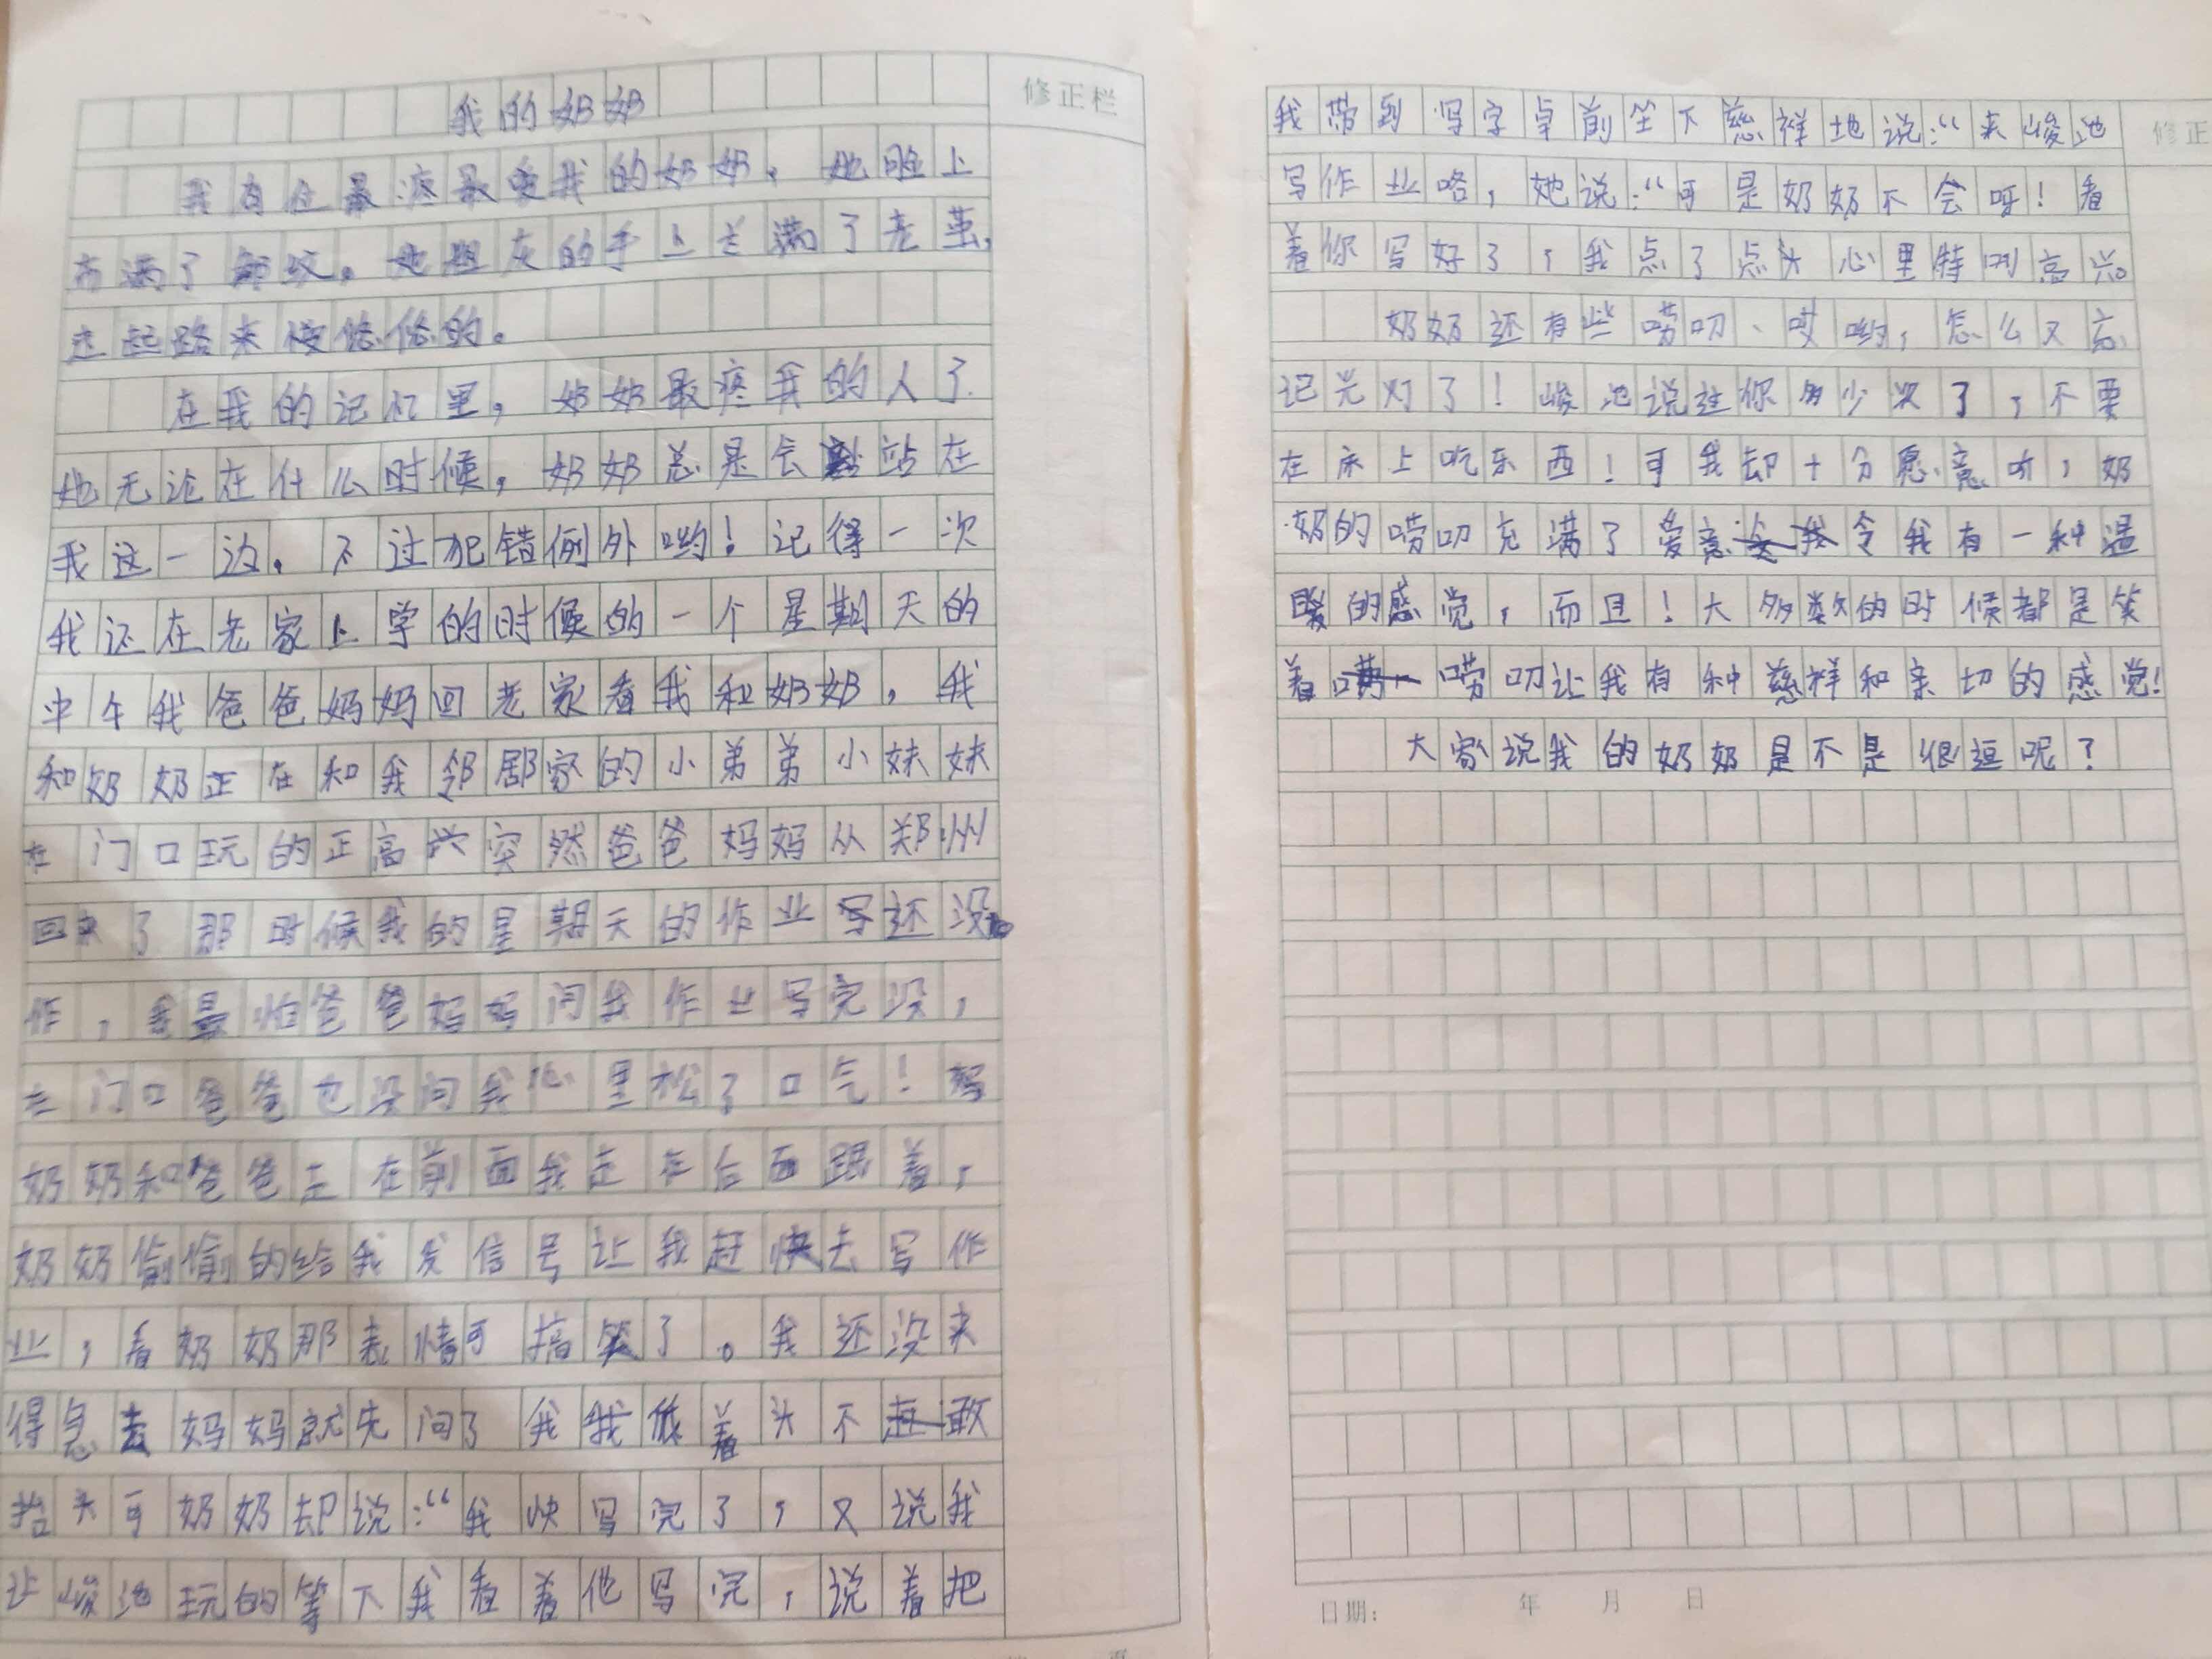 我的奶奶
修正栏
我有位最疼最爱我的奶奶，她脸上
布满了皱纹。她粗灰的手上长满了老茧，
走起路来慢悠悠的。
在我的记忆里，奶奶最疼我的人了.
她无论在什么时候，奶奶总是会站在
我这一边。不过犯错例外哟！记得一次
我还在老家上学的时候的一个星期天的
中午我爸爸妈妈回老家看我和奶奶，我
和奶奶正在和我邻居家的小弟弟小妹妹
在门口玩的正高兴突然爸爸妈妈从郑州
回来了那时候我的星期天的作业写还没
作，我最怕爸爸妈妈问我作业写完没，
在门口爸爸也没问我心里松了口气！妈
奶奶和爸爸走在前面我走在后面跟着，
奶奶偷偷的给我发信号让我赶快去写作
业，看奶奶那表情可搞笑了。我还没来
得急去妈妈就先问了我我低着头不敢
抬头可奶奶却说：“我快写完了，又说我
让峻池玩的等下我看着他写完，说着把
我带到写字卓前坐下慈祥地说：“来峻池
修正
写作业咯，她说：“可是奶奶不会呀！看
着你写好了，我点了点头心里特别高兴。
奶奶还有些唠叨、哎哟，怎么又忘
记关灯了！峻池说过你多少次了，不要
在床上吃东西！可我却十分愿意听，奶
奶的唠叨充满了爱意令我有一种温
暖的感觉，而且！大多数的时候都是笑
着唠叨让我有种慈祥和亲切的感觉！
大家说我的奶奶是不是很逗呢？
日期： 年 月 日